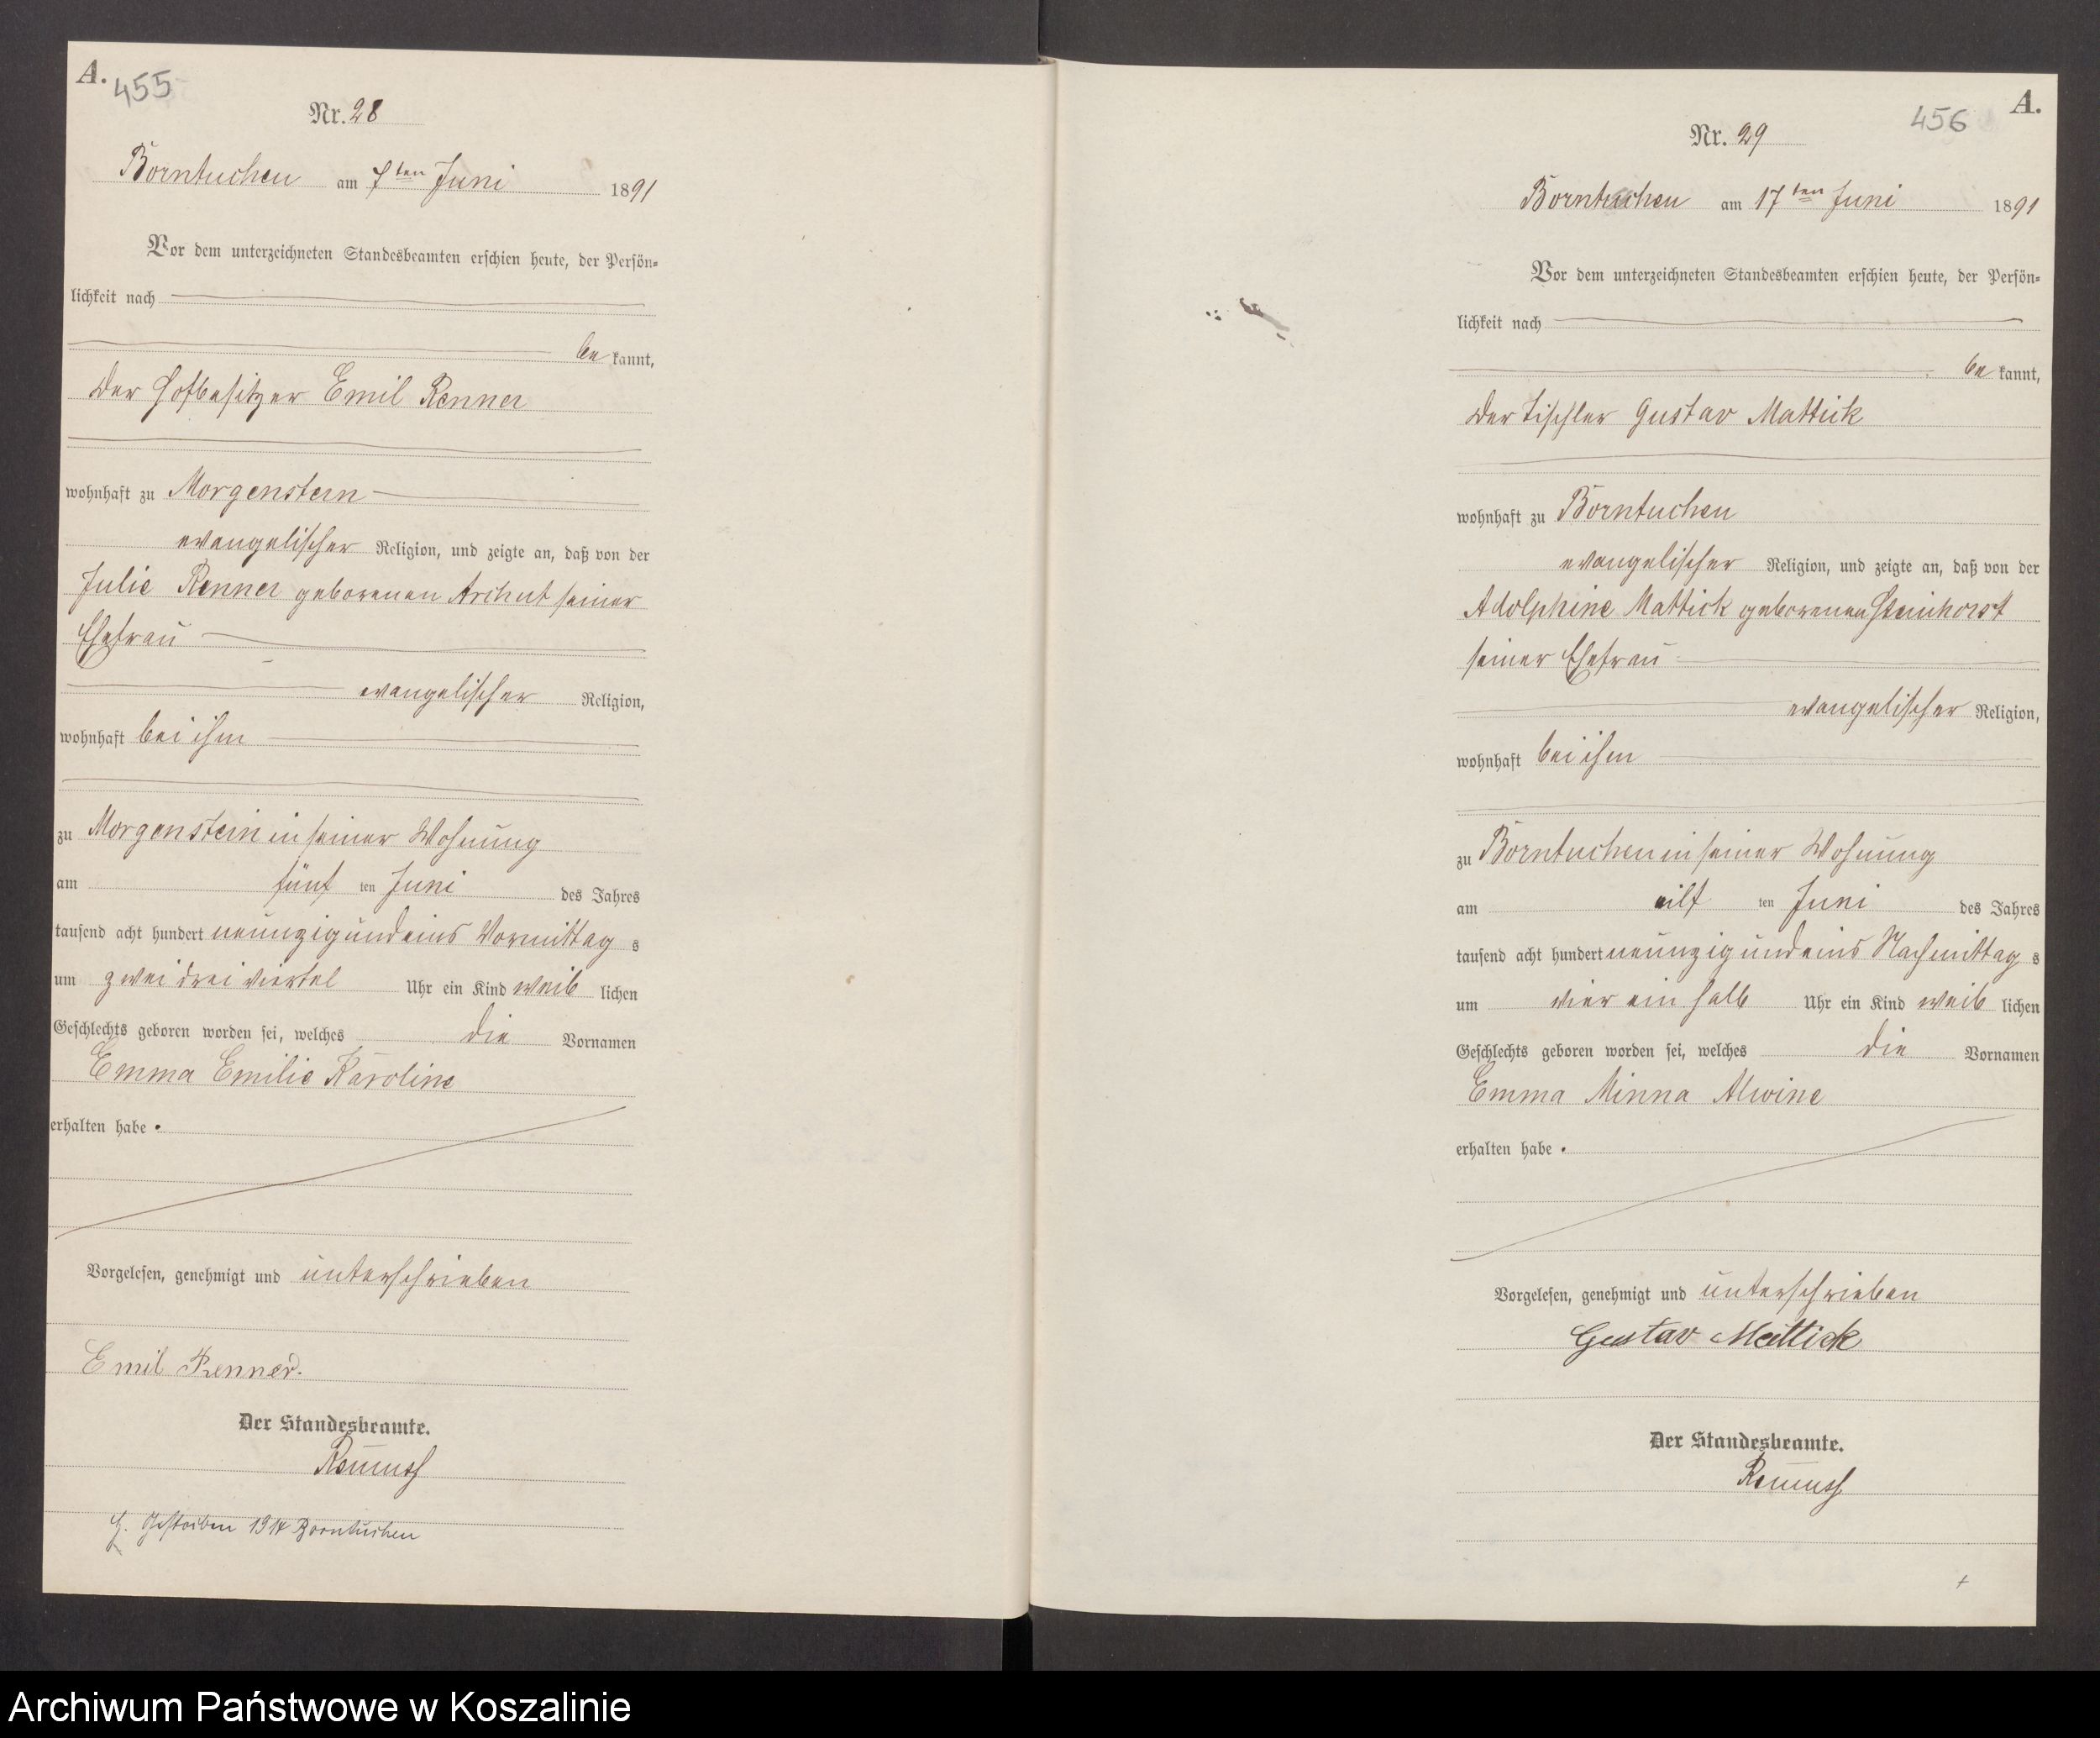 A.
455
Nr. 28
Borntuchen am 7ten Juni 1891
Vor dem unterzeichneten Standesbeamten erschien heute, der Persön-
lichkeit nach
be kannt,
der Hofbesitzer Emil Renner
wohnhaft zu Morgenstern
evangelischer Religion, und zeigte an, daß von der
Julie Renner geborenen Archut seiner
Ehefrau
evangelischer Religion,
wohnhaft bei ihm
zu Morgenstern in seiner Wohnung
am fünf ten Juni des Jahres
tausend acht hundert neunzig und eins Vormittag s
um zwei drei viertel Uhr ein Kind weib lichen
Geschlechts geboren worden sei, welches die Vornamen
Emma Emilie Karoline
erhalten habe.
Vorgelesen, genehmigt und unterschrieben
Emil Renner.
Der Standesbeamte.
Gestorben 1914 Borntuchen
A.
456
Nr. 29
Borntuchen am 17ten Juni 1891
Vor dem unterzeichneten Standesbeamten erschien heute, der Persön-
lichkeit nach
be kannt,
der Tischler Gustav Mattick
wohnhaft zu Borntuchen
evangelischer Religion, und zeigte an, daß von der
Adolphine Mattick geborenen Steinhorst
seiner Ehefrau
evangelischer Religion,
wohnhaft bei ihm
zu Borntuchen in seiner Wohnung
am eilf ten Juni des Jahres
tausend acht hundert neunzig und eins Nachmittag s
um vier ein halb Uhr ein Kind weib lichen
Geschlechts geboren worden sei, welches die Vornamen
Emma Minna Alwine
erhalten habe.
Vorgelesen, genehmigt und unterschrieben
Gustav Mattick
Der Standesbeamte.
Archiwum Państwowe w Koszalinie